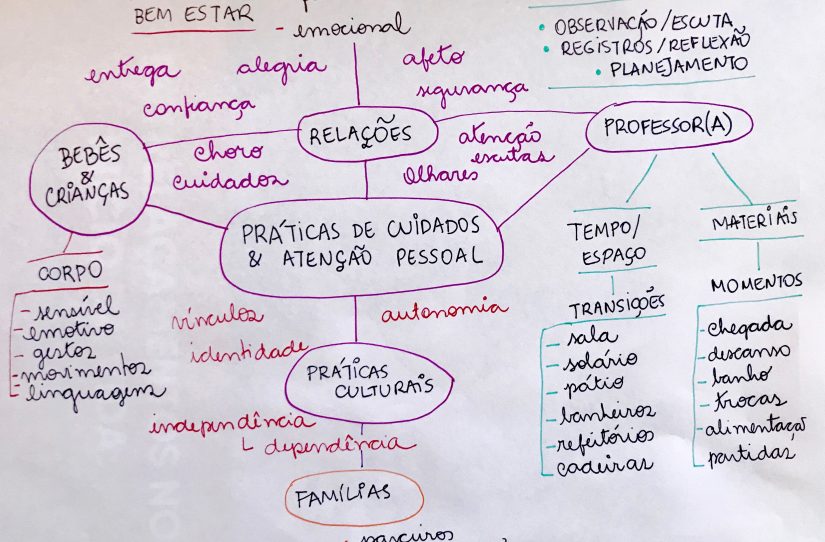 BEM ESTAR
- emocional
• OBSERVAÇÃO/ESCUTA
• REGISTROS/REFLEXÃO
• PLANEJAMENTO
entrega
alegria
afeto
confiança
segurança
BEBÊS
&
CRIANÇAS
RELAÇÕES
PROFESSOR(A)
choro
cuidados
atenção
escutas
Olhares
PRÁTICAS DE CUIDADOS
& ATENÇÃO PESSOAL
CORPO
- sensível
- emotivo
- gestos
- movimentos
- linguagens
vínculos
identidade
autonomia
PRÁTICAS
CULTURAIS
independência
└ dependência
FAMÍLIAS
parceiros
TEMPO/
ESPAÇO
TRANSIÇÕES
- sala
- solário
- pátio
- banheiros
- refeitórios
- cadeiras
MATERIAIS
MOMENTOS
- chegada
- descanso
- banho
- trocas
- alimentação
- partidas